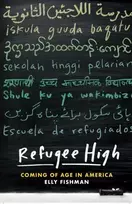 مدرسة اللاجئين الثانوية
iskula guuda baqatu
sekolah hinggi pelarian
Shule ku ya wakimbizi
Escuela de refugiados
Refugee High
COMING OF AGE IN AMERICA
ELLY FISHMAN